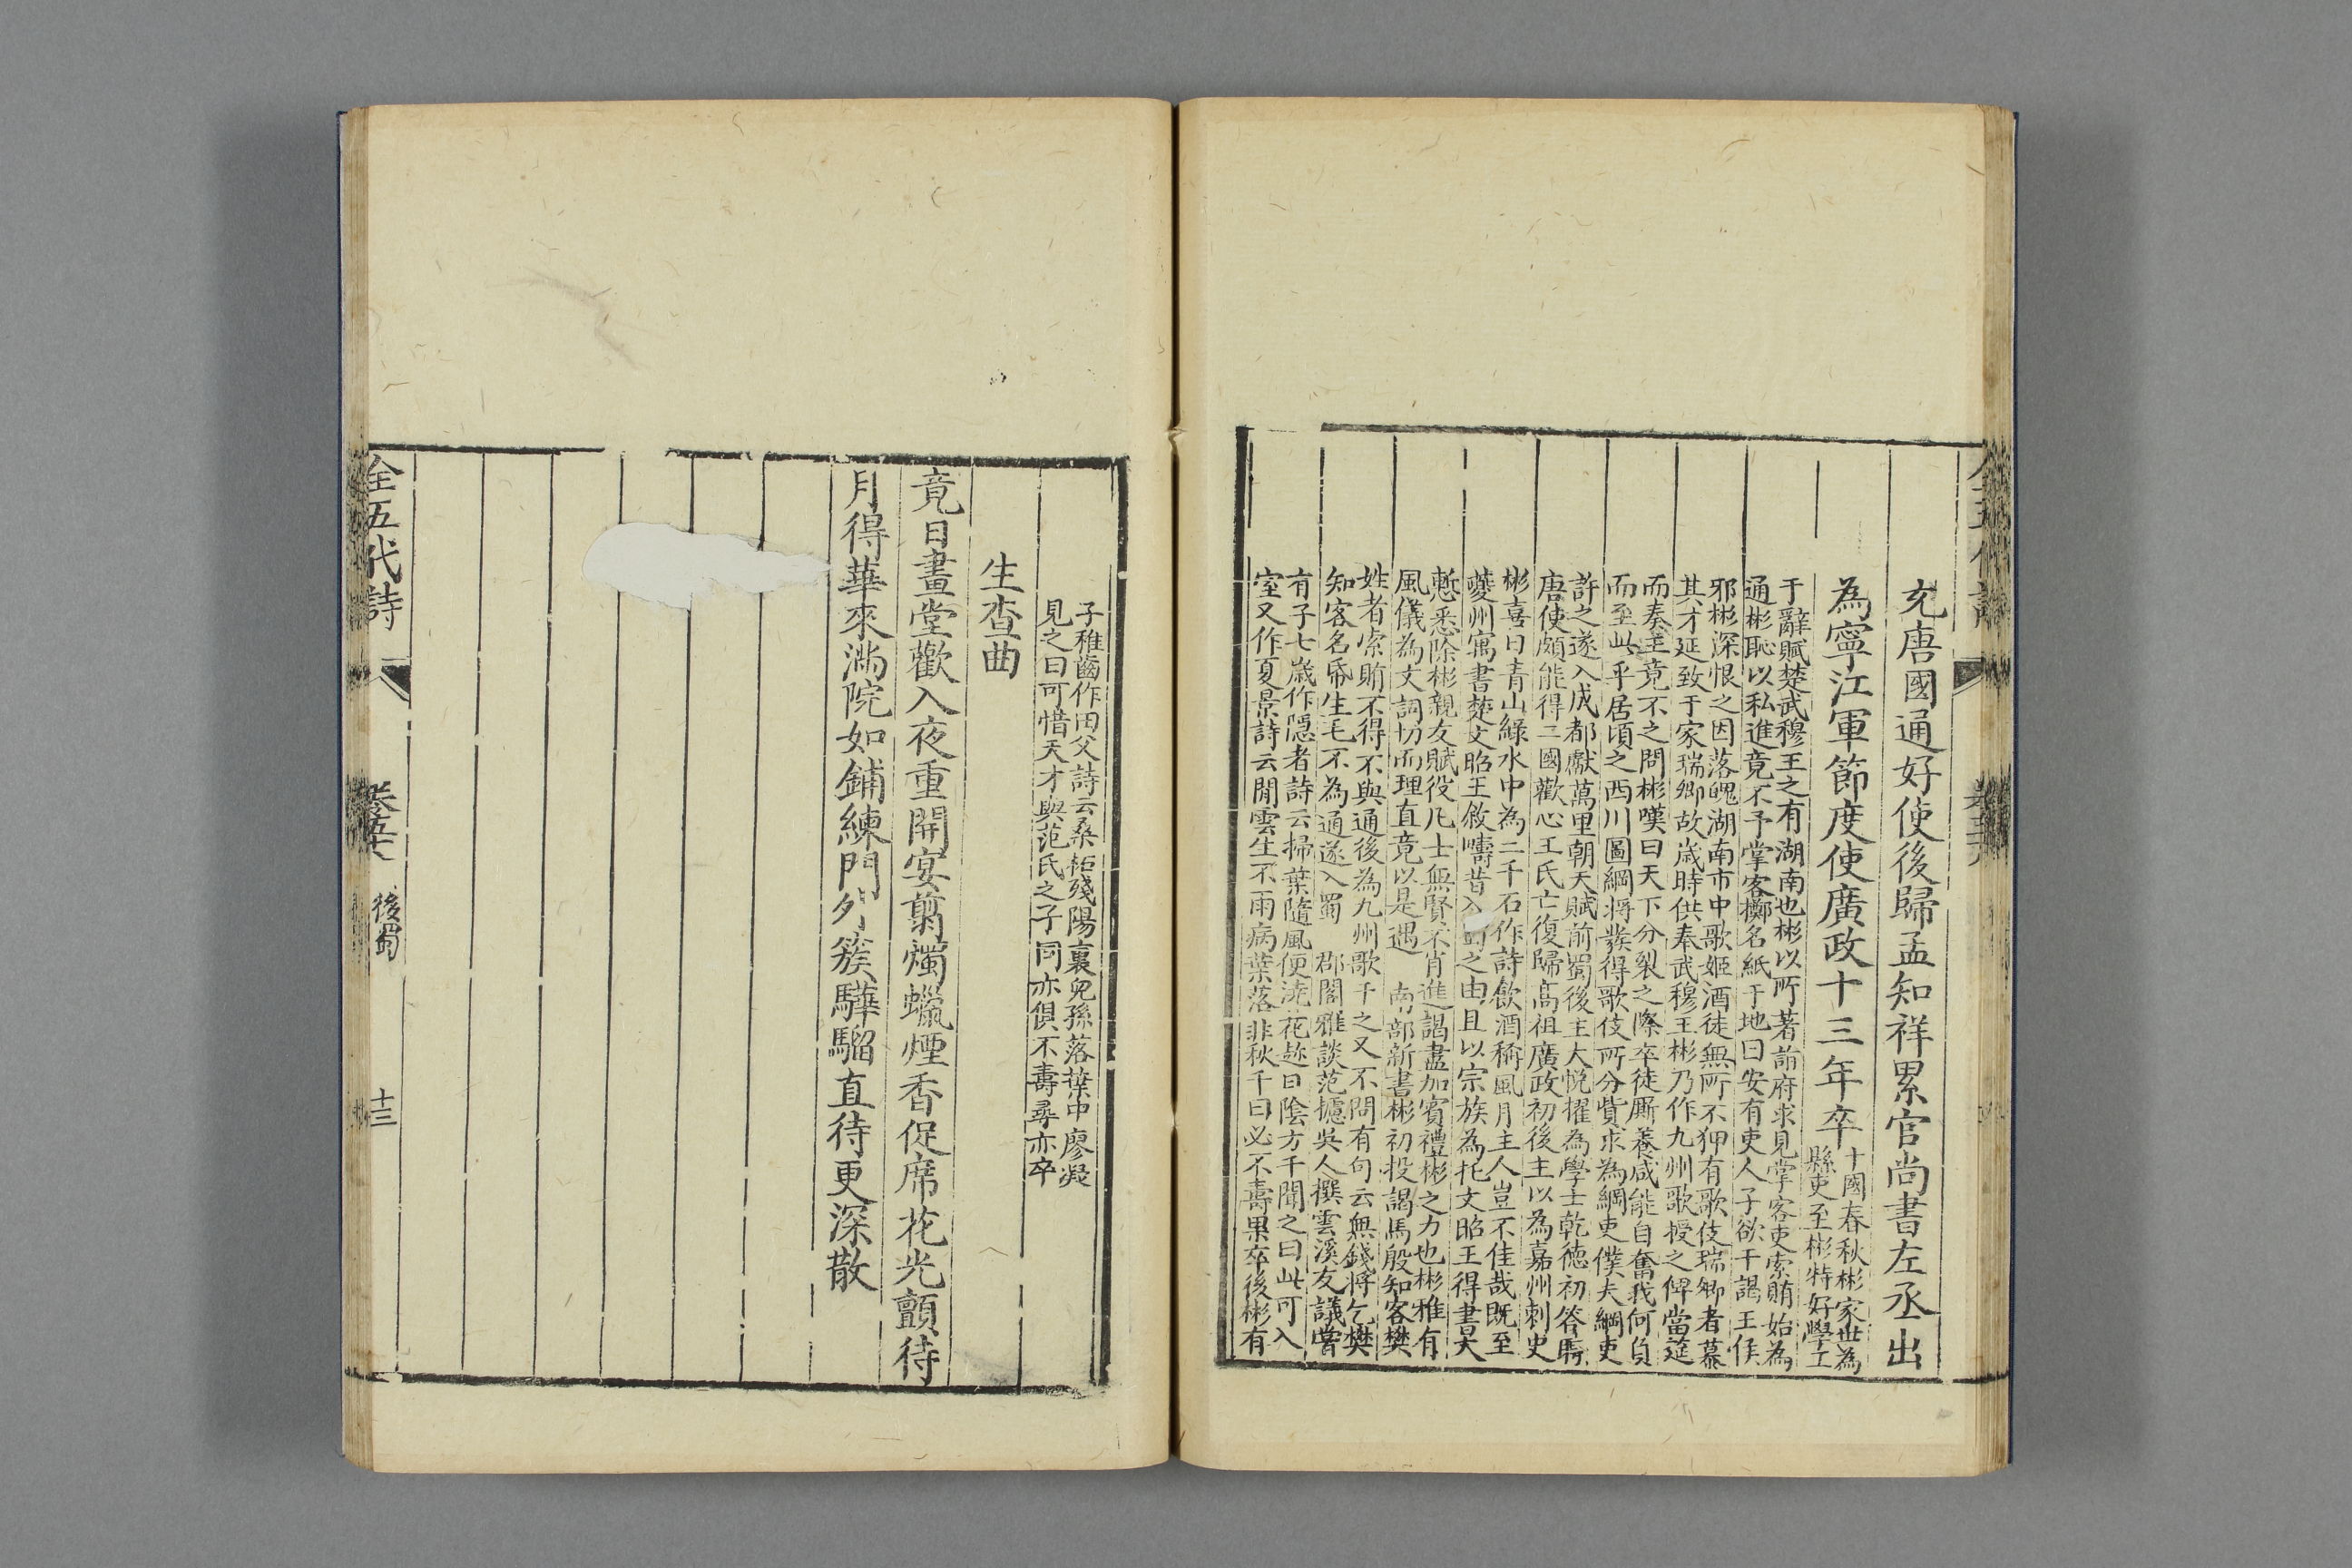 充唐國通好使後歸孟知祥累官尚書左丞出
為寧江軍節度使廣政十三年卒
十國春秋彬家世為
縣吏至彬特好學工
于辭賦楚武穆王之有湖南也彬以所著詣府求見掌客吏索賄始為
通彬恥以私進竟不予掌客擲名紙于地曰安有吏人子欲干謁王侯
邪彬深恨之因落魄湖南市中歌姬酒徒無所不狎有歌伎瑞卿者慕
其才延致于家瑞卿故歲時供奉武穆王彬乃作九州歌授之俾當筵
而奏王竟不之問彬嘆曰天下分裂之際卒徒廝養咸能自奮我何負
而至此乎居頃之西川圖綱將發得歌伎所分貲求為綱吏僕夫綱吏
許之遂入成都獻萬里朝天賦前蜀後主大悅擢為學士乾德初答聘
唐使頗能得二國歡心王氏亡復歸高祖廣政初後主以為嘉州刺史
彬喜曰青山綠水中為二千石作詩飲酒稱風月主人豈不佳哉既至
夔州寓書楚文昭王敘疇昔入蜀之由且以宗族為托文昭王得書大
慙悉除彬親友賦役凡士無賢不肖進謁盡加賓禮彬之力也彬雅有
風儀為文詞切而理直竟以是遇 南部新書彬初投謁馬殷知客樊
姓者索賄不得不與通後為九州歌干之又不問有句云無錢將乞樊
知客名帋生毛不為通遂入蜀 郡閣雅談范攄吳人撰雲溪友議嘗
有子七歲作隱者詩云掃葉隨風便澆花趂日陰方干聞之曰此可入
室又作夏景詩云閒雲生不雨病葉落非秋干曰必不壽果卒後彬有
子稚齒作田父詩云桑柘殘陽裏兒孫落葉中廖凝
見之曰可惜天才與范氏之子同亦俱不壽尋亦卒
生查曲
竟日畫堂歡入夜重開宴翦燭蠟煙香促席花光顫待
月得華來滿院如鋪練門外簇驊騮直待更深散
全五代詩
卷五六
後蜀
十三